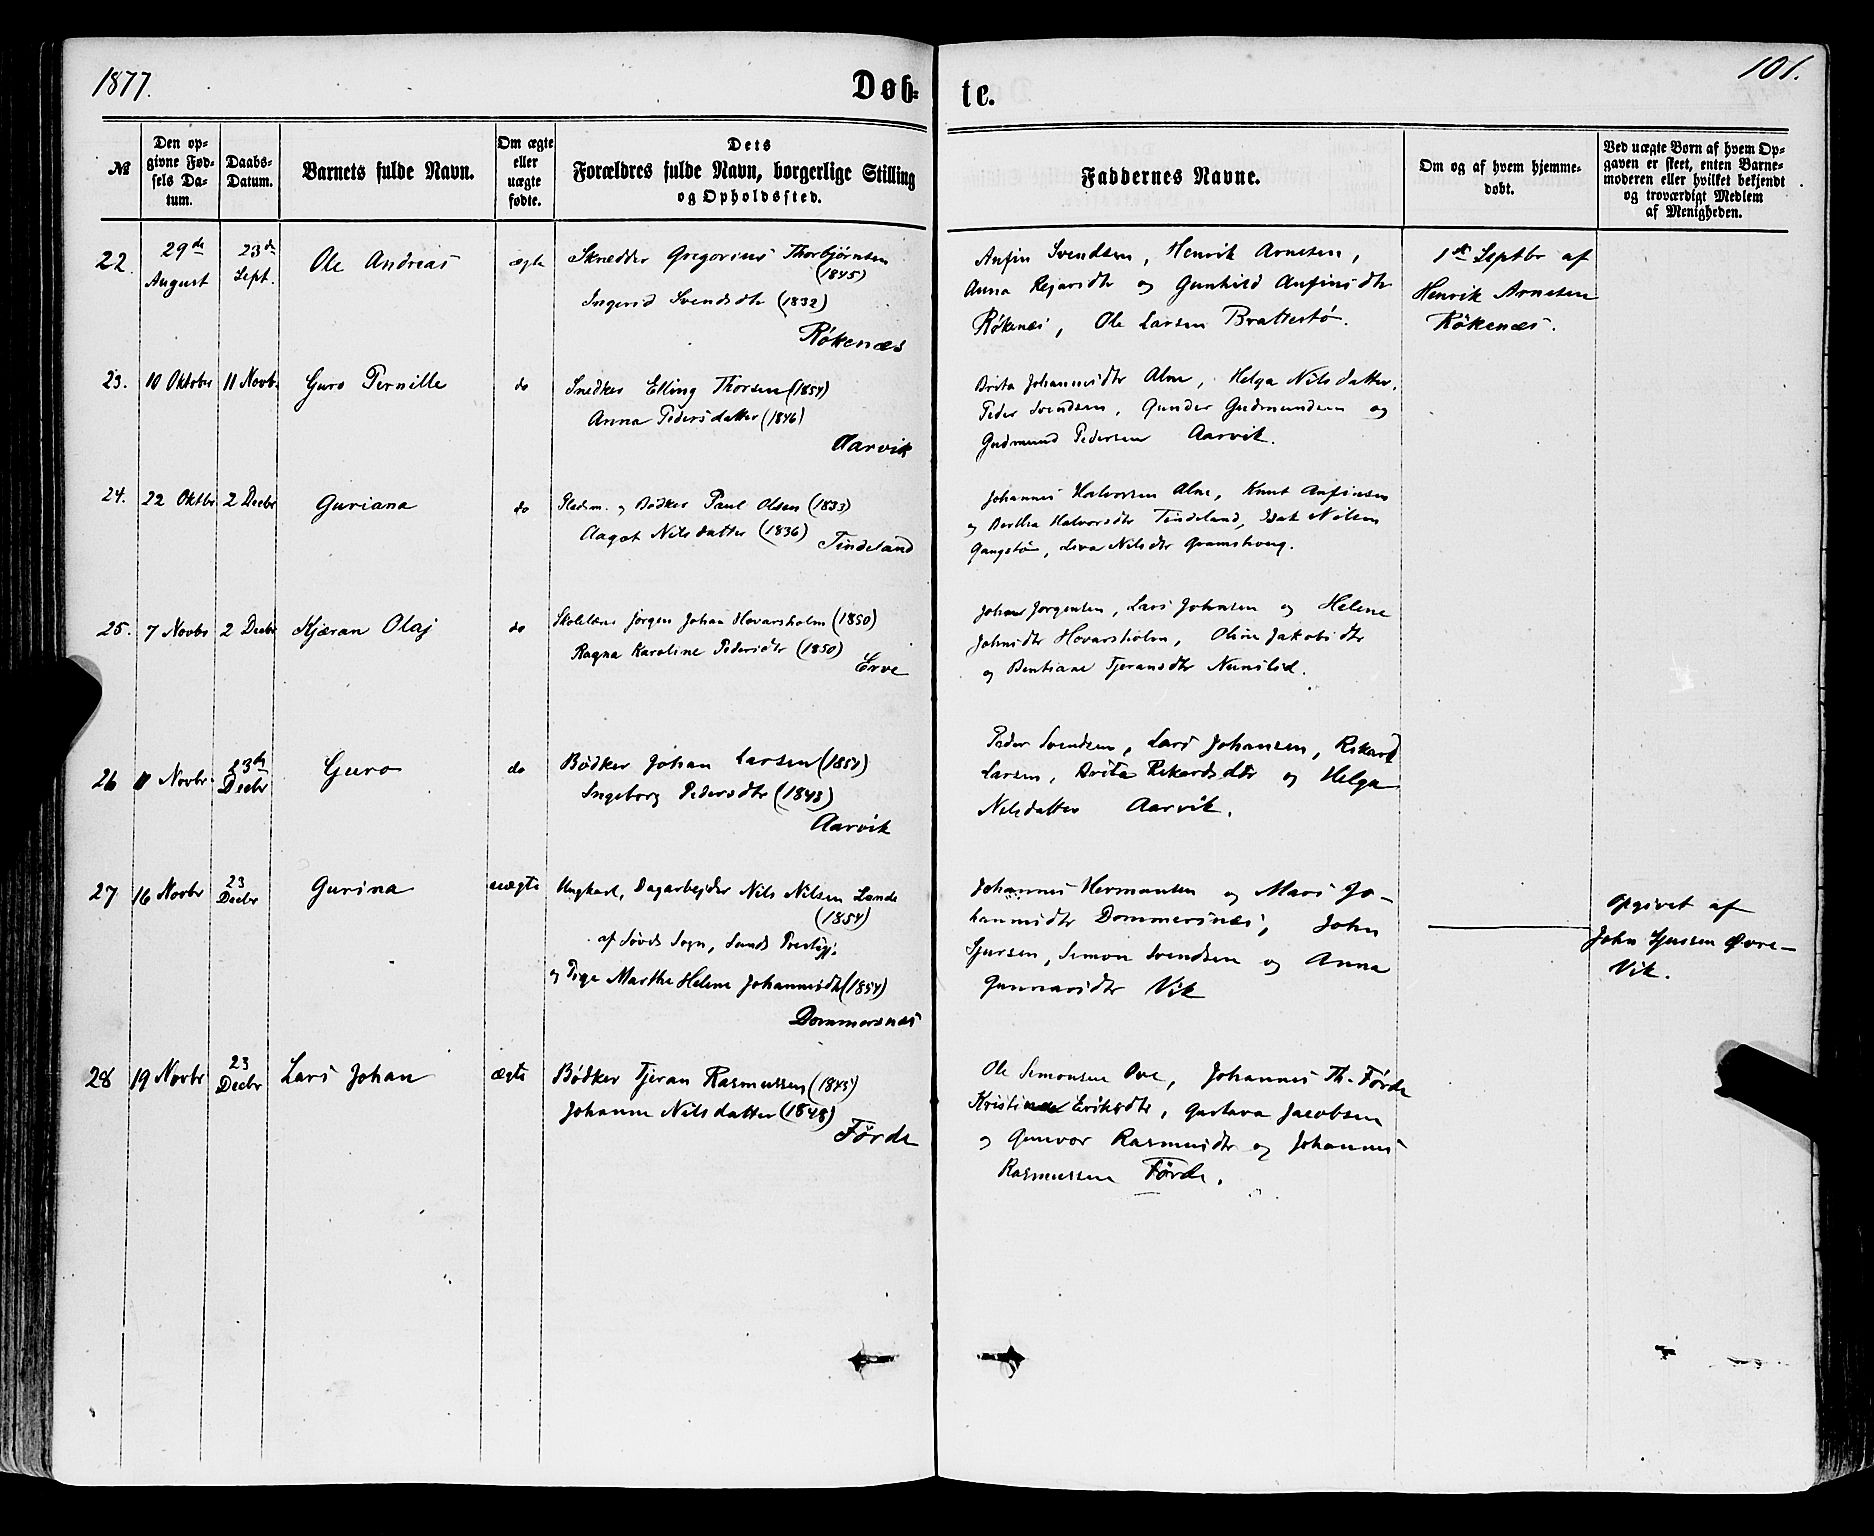 1877.
Døb-
te.
101.
№
Den op-
givne Fød-
sels Da-
tum.
Daabs-
Datum.
Barnets fulde Navn.
Om ægte
eller
uægte
fødte.
Dets
Forældres fulde Navn, borgerlige Stilling
og Opholdssted.
Faddernes Navne.
Om og af hvem hjemme-
døbt.
Ved uægte Børn af hvem Op-
gaven er skeet, enten Barne-
moderen eller hvilket bekjendt
og troværdigt Medlem
af Menigheden.
22.
29de
August
23de
Sept.
Ole Andreas
ægte
Skrædder Gregorius Thorbjørnsen
(1845)
Ingerid Svendsdtr (1832)
Røkenæs
Anfin Svendsen, Henrik Arnesen,
Anna Rejarsdtr og Gunhild Anfinsdtr
Røkenæs, Ole Larsen Brattestø.
1ste Septbr af
Henrik Arnesen
Røkenæs.
23.
10 Oktober
11 Novb.
Guro Pernille
do
Snedker Elling Thorsen (1854)
Anna Pedersdatter (1846)
Aarvik
Brita Johannesdtr Alne, Helga Nilsdatter,
Peder Svendsen, Gunder Gudmundsen og
Gudmund Pedersen Aarvik.
24.
22 Oktbr
2 Decbr
Guriana
do
Pladsm. og Bødker Paul Olsen (1833)
Aagot Nilsdatter (1836)
Tindeland
Johannes Halvorsen Alne, Knut Anfinsen
og Bertha Halvorsdtr Tindeland, Isak Nilsen
Gangstø, Nilsdtr
25.
7 Novbr
2 Decbr
Kjæran Olaj
do
Skolelærer Jørgen Johan Hovarsholm (1850)
Ragna Karoline Pedersdtr (1850)
Erve
Johan Jørgensen, Lars Johnsen og Helene
Johnsdtr Hovarsholm, Oline Jakobsdtr
og Bentiane Tjeransdtr Nernslid.
26
11 Novbr
23de
Decbr
Guro
do
Bødker Johan Larsen (1851)
Ingeborg Pedersdtr (1843)
Aarvik
Peder Svendsen, Lars Johansen, Rikard
Larsen, Brita Rikardsdtr og Helga
Nilsdatter Aarvik.
27
16 Novbr
23
Decbr
Gurina
uægte
Ungkarl, Dagarbejder Nils Nilsen Lande
(1854)
af Søvde Sogn, Sands Prestegj.
og Pige Marthe Helene Johannesdtr (1854)
Dommersnæs
Johannes Hermansen og Mari Jo-
hannesdtr Dommersnæs, John
Sjursen, Simon Svendsen og Anna
Gunnarsdtr Vik
Opgivet af
John Sjursen Øvre-
Vik.
28
19 Novbr
23
Decbr
Lars Johan
ægte
Bødker Tjeran Rasmussen (1845)
Johanne Nilsdatter (1848)
Førde
Ole Simonsen Ove, Johannes Th. Førde
Eriksdtr, Gustava Jacobsen
og Gunvor Rasmusdtr og Johannes
Rasmussen Førde.